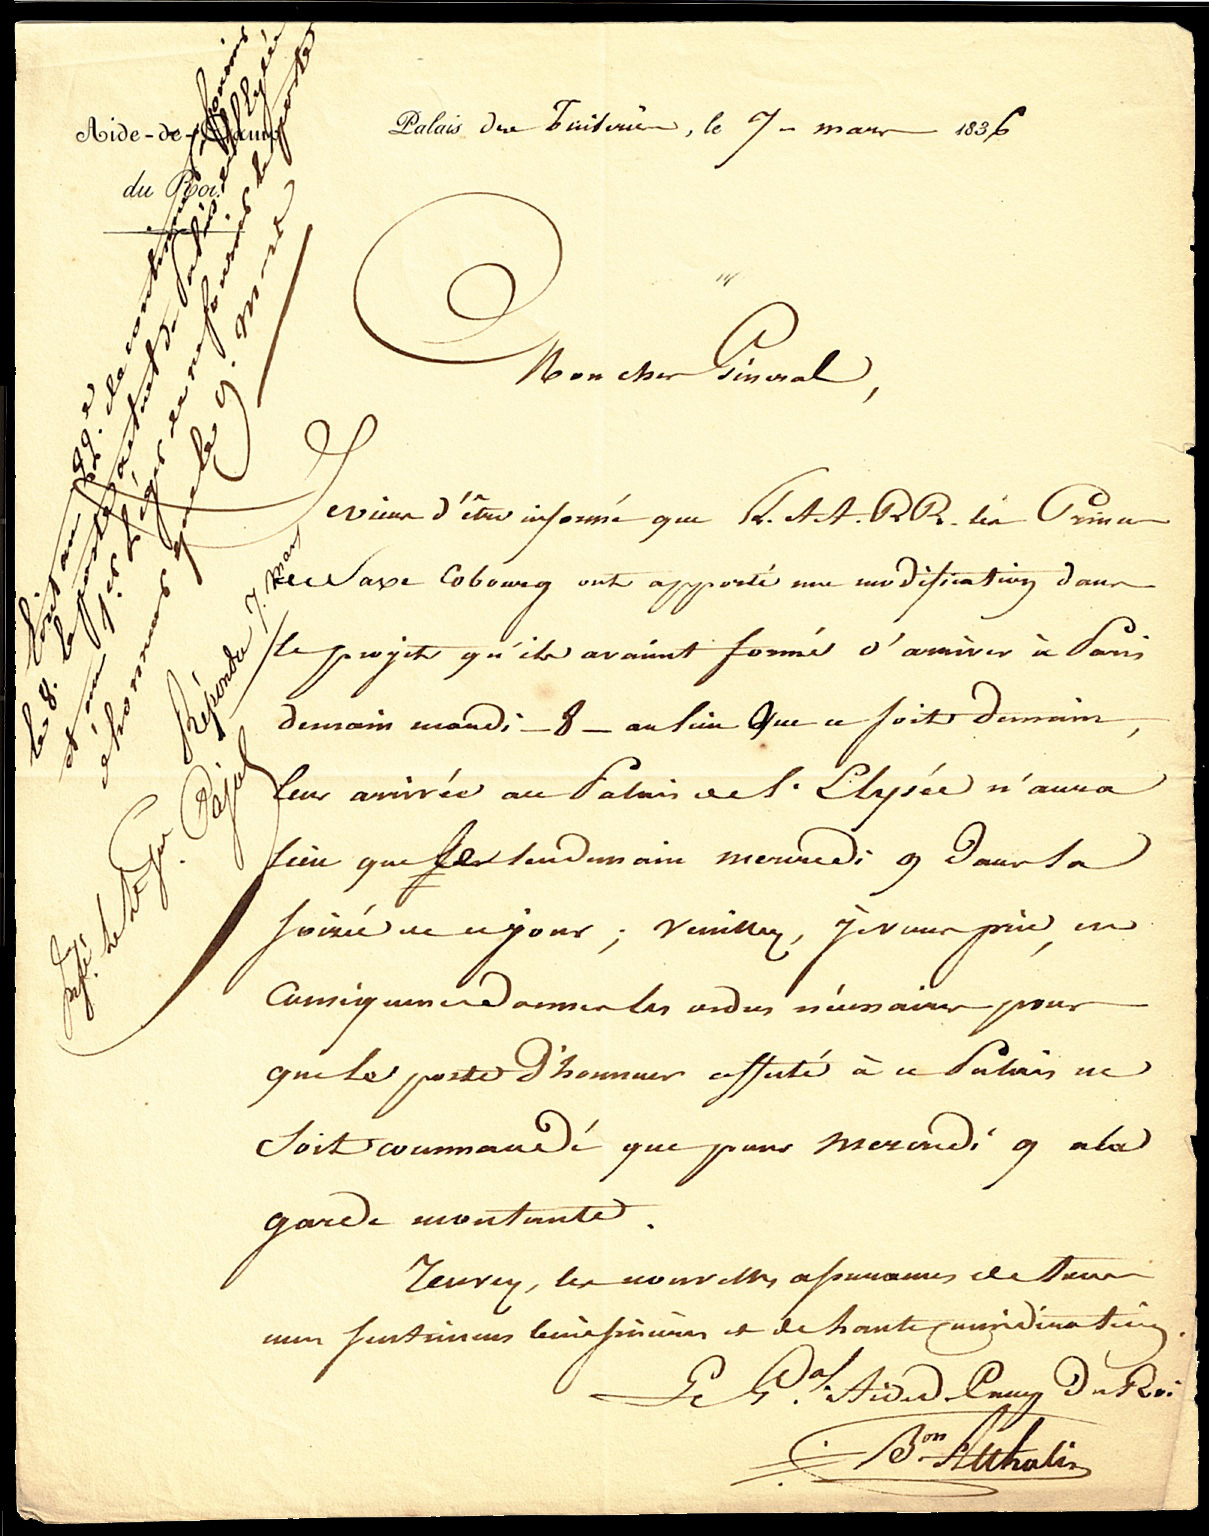 Aide-de-Camp
du Roi.
Palais des Tuileries, le 7 - mars 1836
Mon cher Général,
Je viens d'être informé que L.L. AA. RR. les Princes
de Saxe Cobourg ont apporté une modification dans
le projet qu'ils avaient formé d'arriver à Paris
demain mardi - 8 - au lieu que ce soit demain,
leur arrivée au Palais de l'Elysée n'aura
lieu que le lendemain mercredi 9 dans la
soirée de ce jour ; veuillez, je vous prie, en
conséquence donner les ordres nécessaires pour
que le poste d'honneur affecté à ce Palais ne
soit commandé que pour mercredi 9 à la
garde montante.
Recevez, les nouvelles assurances de tous
mes sentimens bien sincères et de haute considération.
Le Gal. Aide de Camp du Roi
Bon Atthalin
Ecrit au 49e de continuer à fournir
le 8. le poste actuel du Palais de l'Elysée
et au 1er Léger de ne fournir le poste
d'honneur que le 9. mars
Répondu 7. mars
Signé: le Lt Gal Pajol